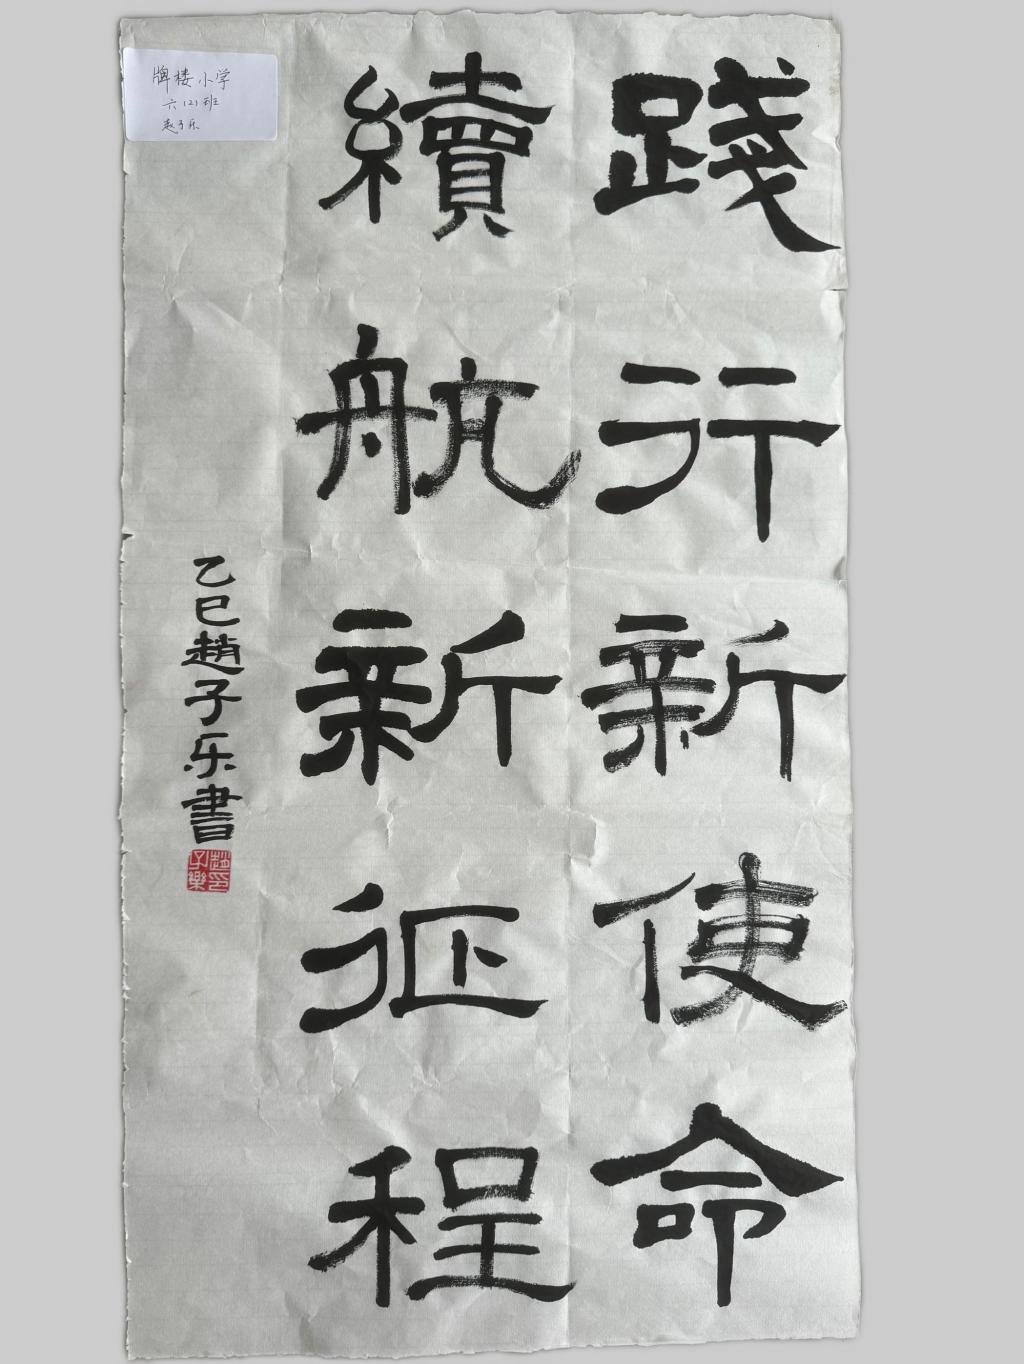 踐行新使命
續航新征程
乙巳趙子乐書
趙印子樂
牌楼小学
六(2)班
赵子乐